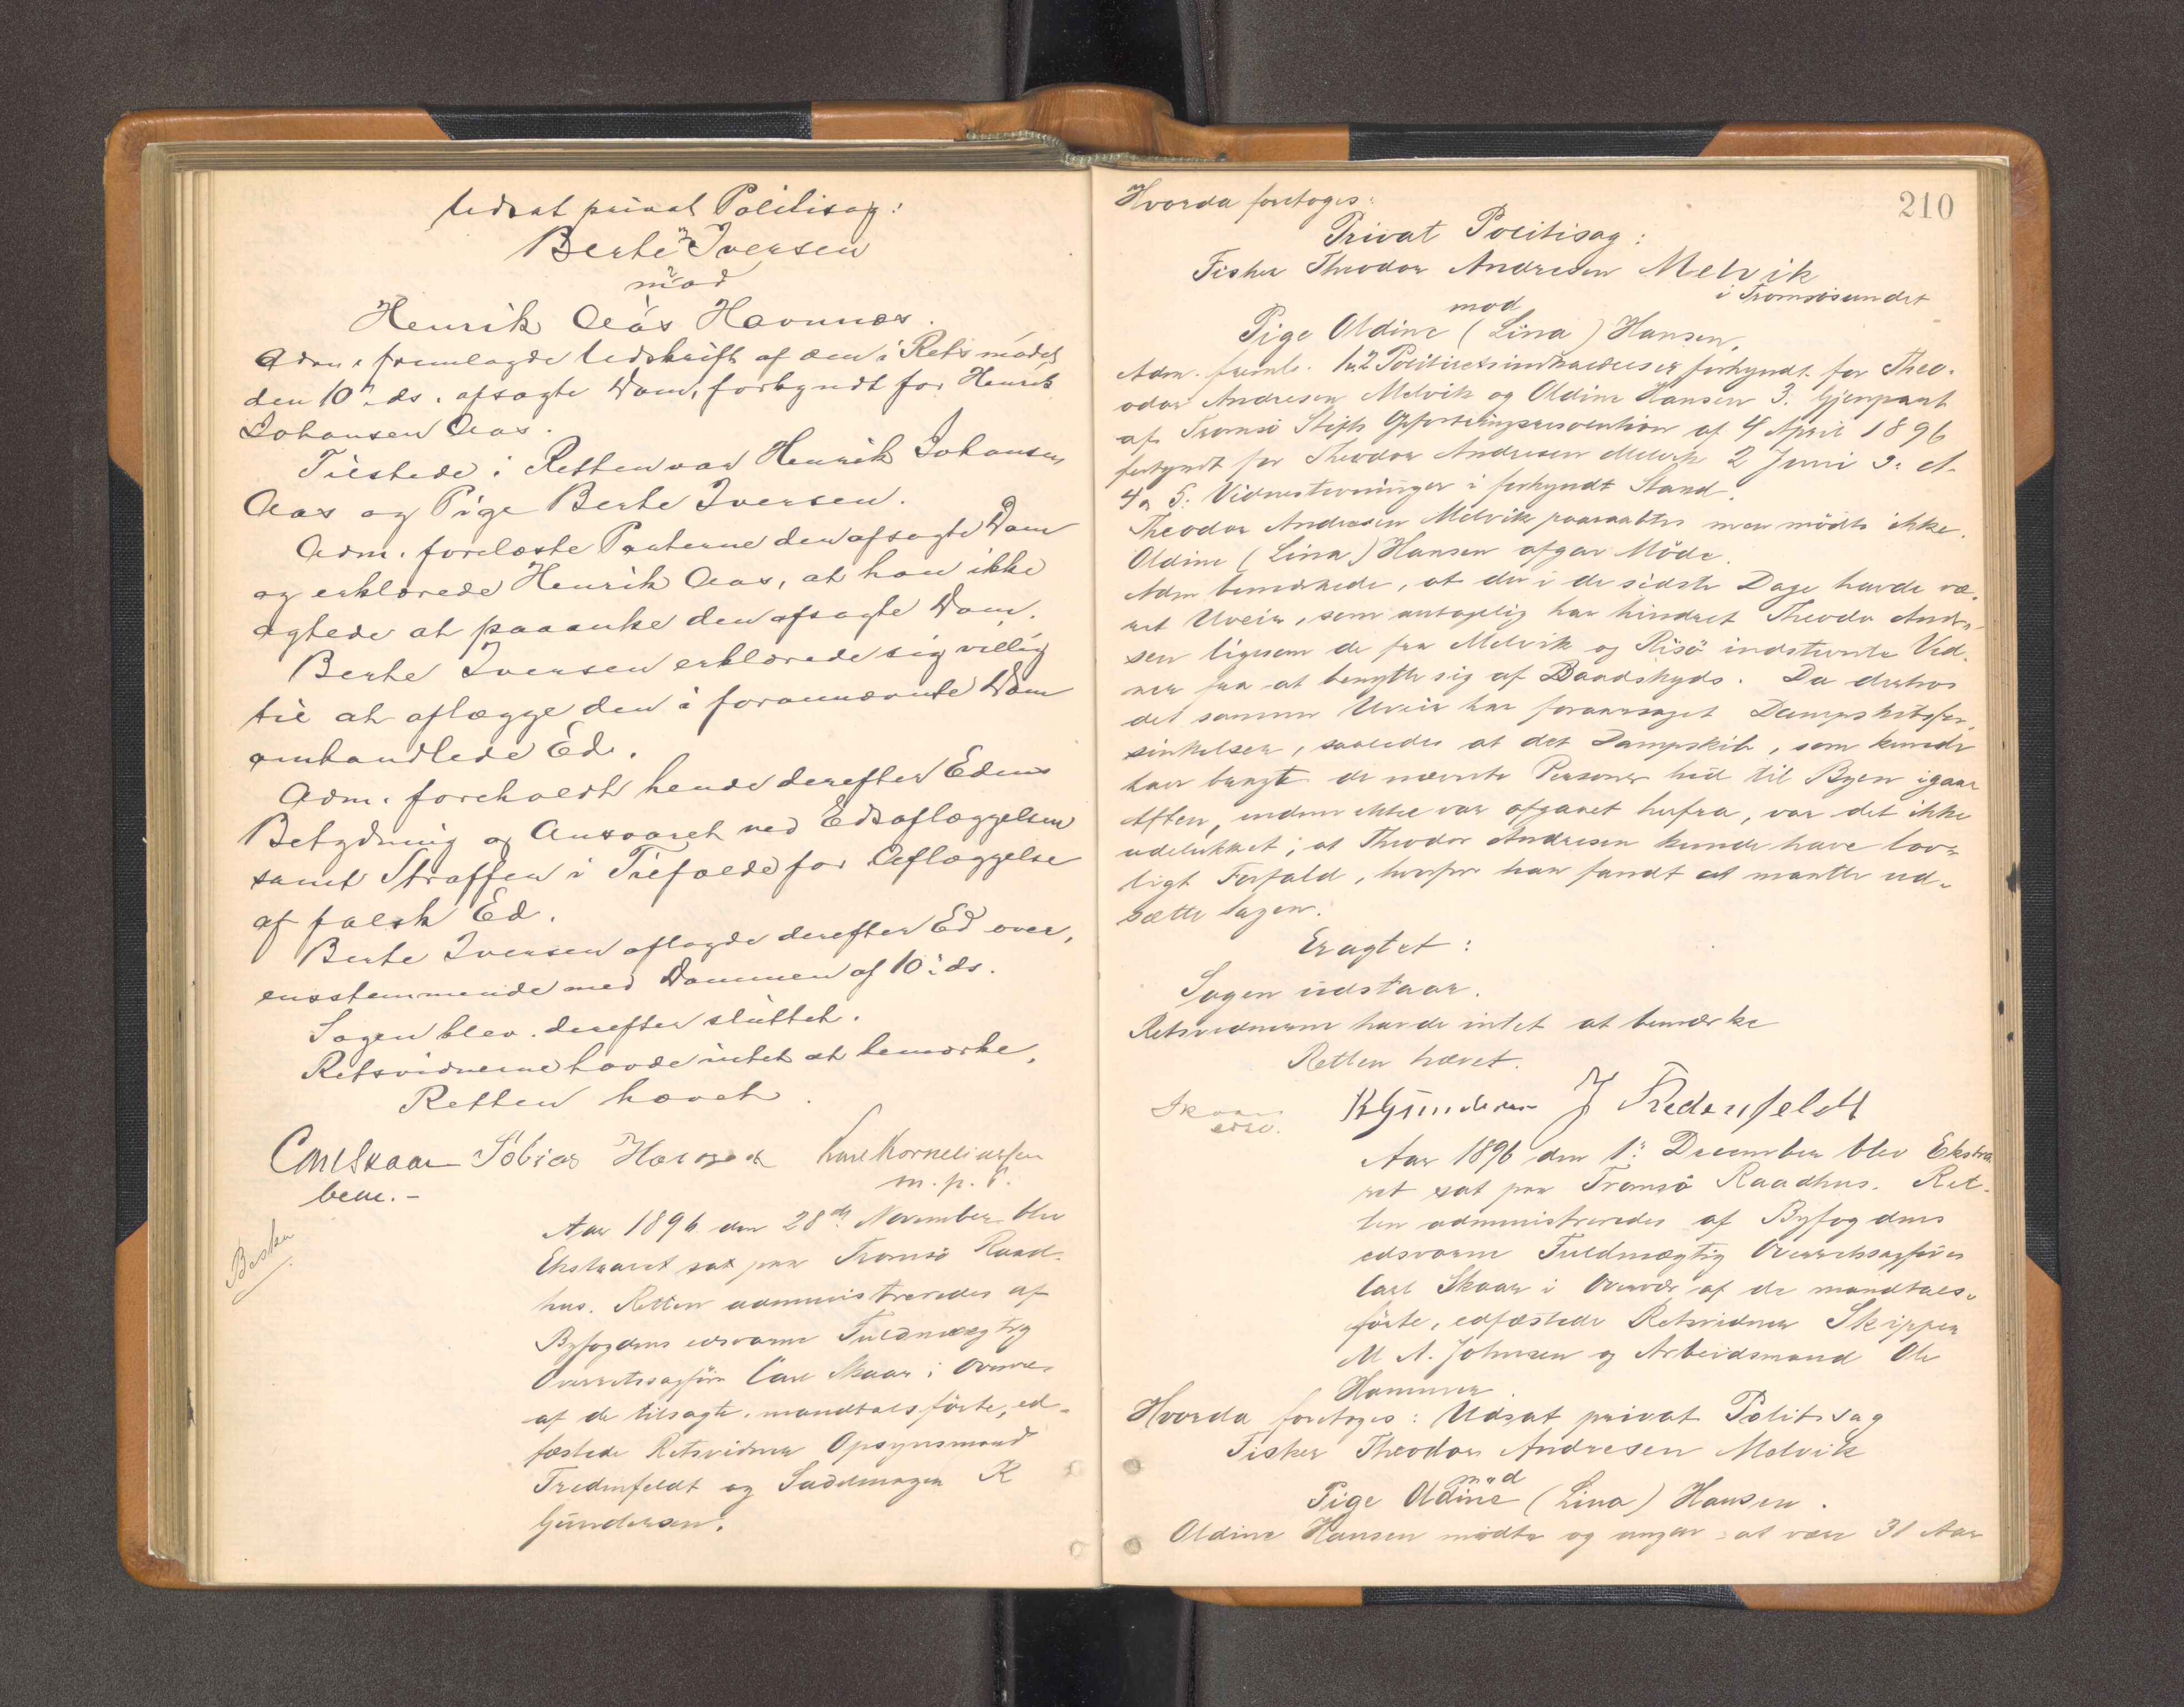 Udsat privat Politisag:
Berte Iversen
mod
Henrik Aas Havnnæs.
Adm. fremlagde Udskrift af den i Retsmødet
den 10. ds. afsagte Dom, forkyndt for Henrik
Johansen Aas.
Tilstede i Retten var Henrik Johansen
Aas og Pige Berte Iversen.
Adm. foreleste Parterne den afsagte Dom
og erklærede Henrik Aas, at han ikke
agtede at paaanke den afsagte Dom.
Berte Iversen erklærede sig villig
til at aflægge den i forannævnte Dom
omhandlede Ed.
Adm. foreholdt hende derefter Edens
Betydning og Ansvaret ved Edsaflæggelsen
samt Straffen i Tilfælde for Aflæggelse
af falsk Ed.
Berte Iversen aflagde derefter Ed over,
ensstemmende med Dommen af 10. ds.
Sagen blev derefter sluttet.
Retsvidnerne havde intet at bemærke.
Retten hævet.
Carl Skaar Tobias Hansen Karl Korneliussen
bem.- m. p. P.
Aar 1896 den 28de November blev
Ekstraret sat paa Tromsö Raad-
hus. Retten administreredes af
Byfogdens edsvorne Fuldmægtig
Overretssagfører Carl Skaar i Overvær
af de tilsagte, mandtalsførte, ed-
fæstede Retsvidner Opsynsmand
Fredenfeldt og Sadelmager K
Gundersen.
210
Hvorda foretoges:
Privat Politisag:
Fisker Theodor Andresen Melvik
i Tromsösundet
mod
Pige Oldine (Lina) Hansen.
Adm. freml. 1 & 2 Politiretsindkaldelser forkyndt for Theo-
odor Andresen Melvik og Oldine Hansen 3. Gjenpart
af Tromsö Stifts Opfostringsresolution af 4 April 1896
forkyndt for Theodor Andresen Melvik 2 Juni d. A.
4 & 5. Vidnestevninger i forkyndt Stand.
Theodor Andresen Melvik paaraabtes men mödte ikke.
Oldine (Lina) Hansen afgav Möde.
Adm bemærkede, at der i de sidste Dage havde væ-
ret Uveir, som antagelig har hindret Theodor Andre-
sen ligesom de fra Melvik og Risö indstevnte Vid-
ner fra at benytte sig af Baadskyds. Da derhos
det samme Uveir har foraarsaget Dampskibsfor-
sinkelser, saaledes at det Dampskib, som kunde
have bragt de nævnte Personer hid til Byen igaar
Aften, endnu ikke var afgaaet herfra, var det ikke
udelukket, at Theodor Andresen kunde have lov-
ligt Forfald, hvorfor han fandt at maatte ud-
sætte Sagen.
Eragtet:
Sagen udstaar.
Retsvidnerne havde intet at bemærke
Retten hævet.
Skaar
K Gundersen J Fredenfeldt
Aar 1896 den 1. December blev Ekstra-
ret sat paa Tromsö Raadhus. Ret-
ten administreredes af Byfogdens
edsvorne Fuldmægtig Overretssagförer
Carl Skaar i Overvær af de mandtals-
förte, edfæstede Retsvidner Skipper
M A. Johnsen og Arbeidsmand Ole
Hammer.
Hvorda foretoges: Udsat privat Politisag
Fisker Theodor Andresen Melvik
mod
Pige Oldine (Lina) Hansen.
Oldine Hansen mödte og angav at være 31 Aar